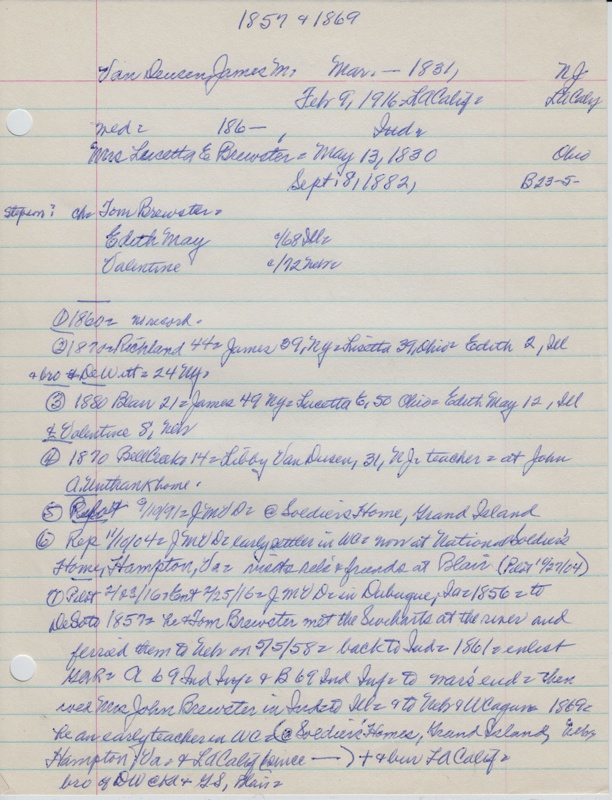 1857 & 1869
Van Deusen, James M: Mar. — 1831, NJ
Feb 9, 1916 = LA Calif = LA Caly
med = 186—, Ind =
Mrs Lucetta E Brewster = May 13, 1830 Ohio
Sept 18, 1882, B23-5-
Stepson: ch = Tom Brewster =
Edith May c/68 Ill =
Valentine c/72 Nebr
① 1860 = no record.
② 1870 = Richland 44 = James 39, NY = Lisetta 39, Ohio = Edith 2, Ill
& bro & DeWitt = 24 NY =
③ 1880 Blair 21 = James 49 NY = Lucetta E, 50 Ohio = Edith May 12, Ill
& Valentine 8, Neb
④ 1870 Bell Creek 14 = Libby Van Dusen, 31, NJ = teacher = at John
A. Unthank home.
⑤ 9/10/91 = J M V D = @ Soldiers Home, Grand Island
⑥ Rep 11/10/04 = J M V D = early settler in WC = now at National Soldiers
Home, Hampton, Va = visits rels & friends at Blair (Pilot 10/27/04)
⑦ Pilot 2/02/16 = Ent 2/25/16 = J M V D = in Dubuque, Ia = 1856 = to
DeSoto 1857 = he & Tom Brewster met the at the river and
ferried them to Neb on 5/5/58 = back to Ind = 1861 = enlist
GAR = A 69 Ind Inf = & B 69 Ind Inf = to war's end = then
wed Mrs John Brewster in Ind = to Ill = & to Neb & W C again 1869 =
he an early teacher in WC (@ Soldiers' Homes, Grand Island, Neb,
Hampton, Va = & LA Calif since —) + & bur LA Calif =
bro of DW c & + GS, Blair =